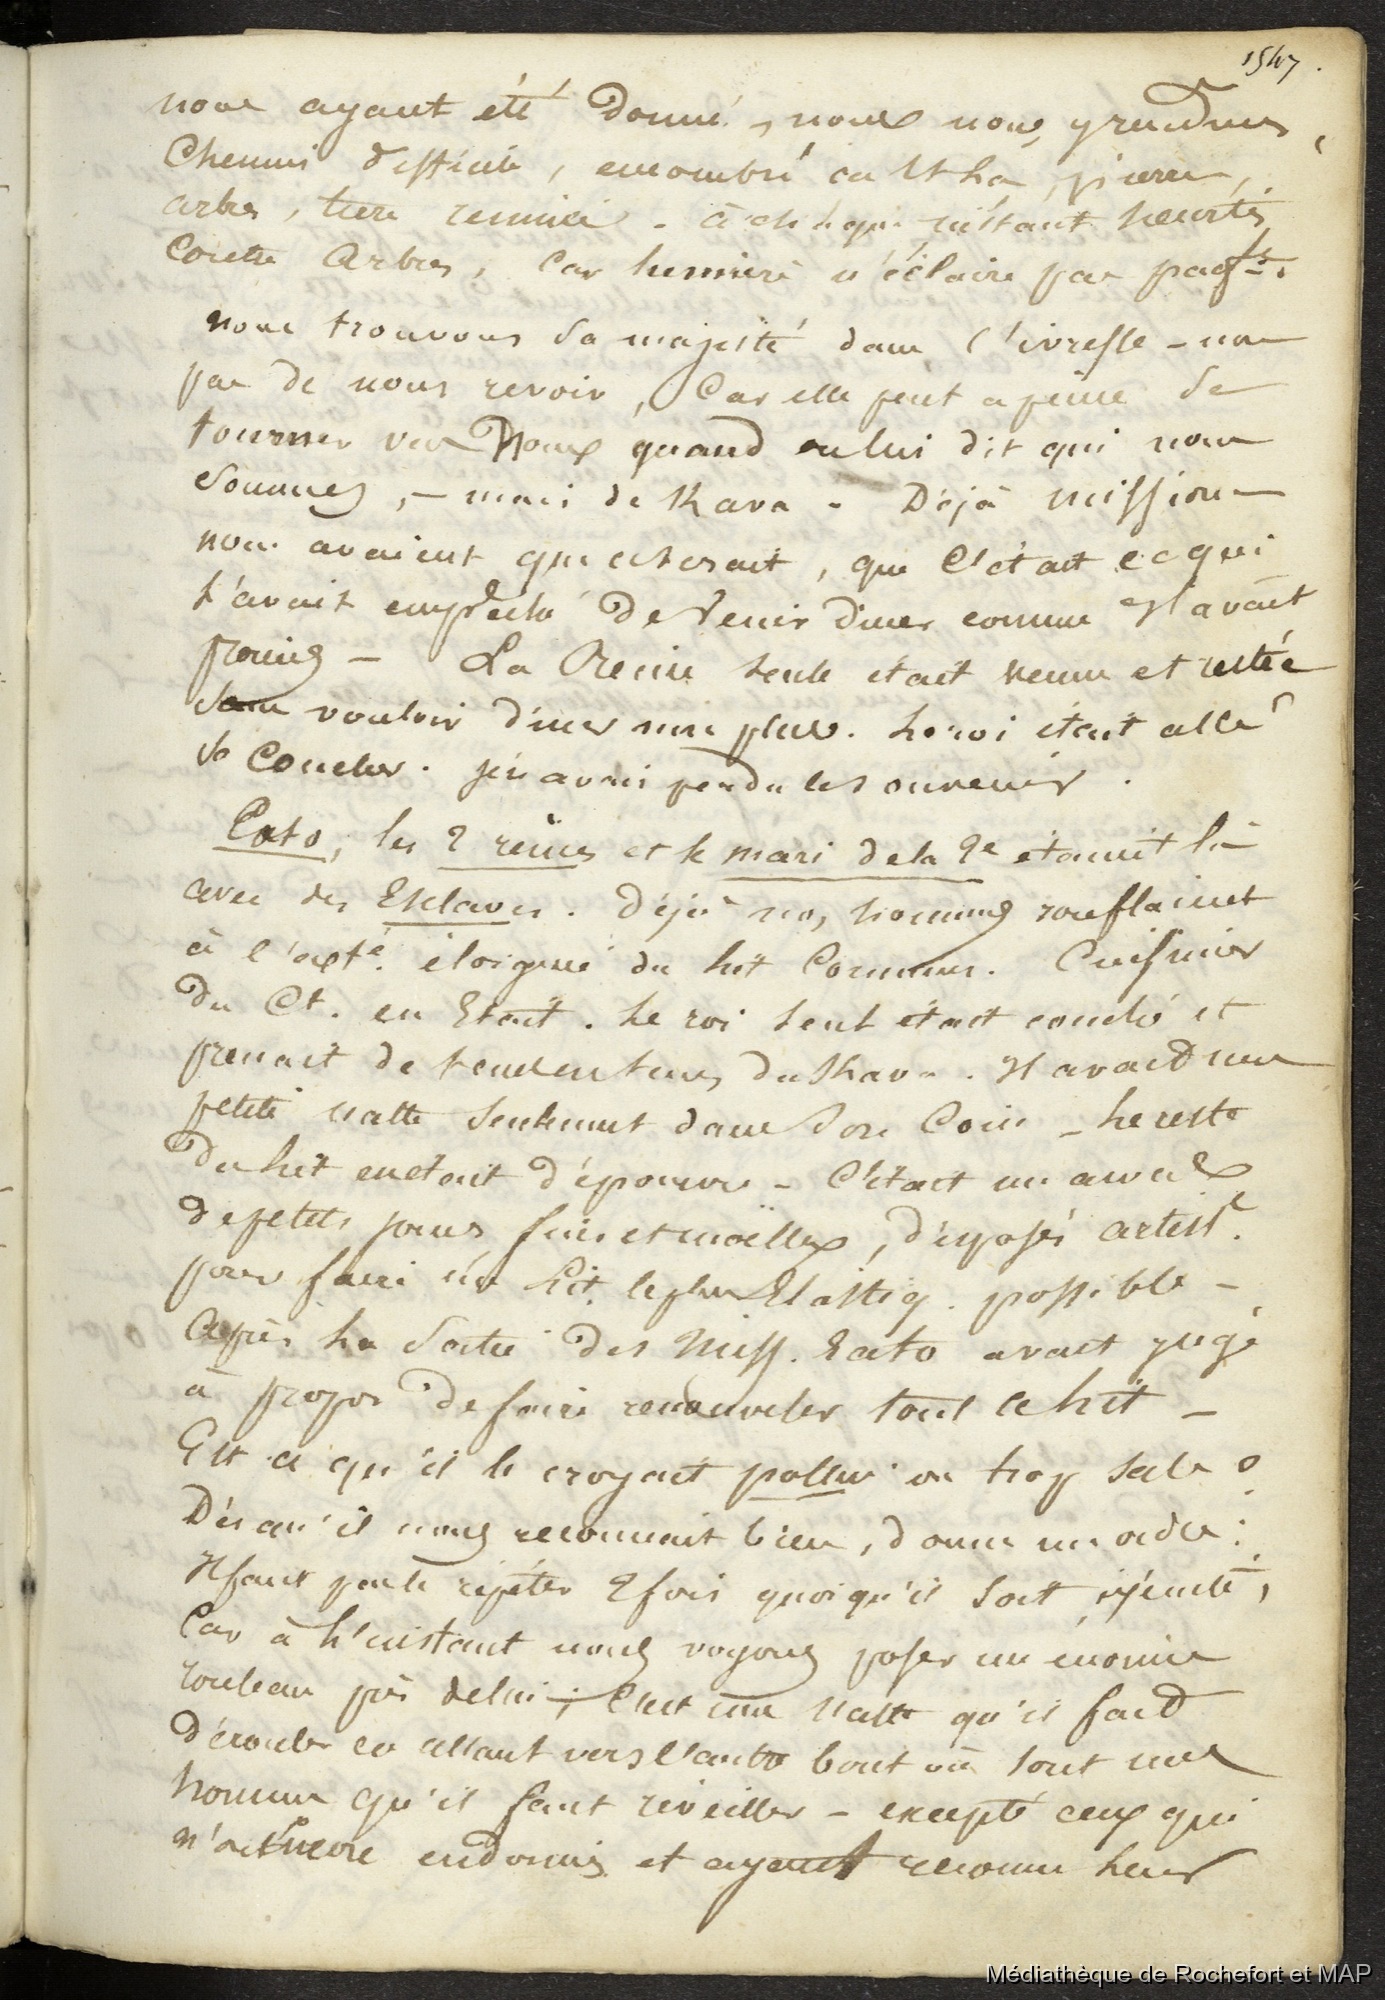 1547.
nous ayant été donné, nous nous y rendîmes,
Chemin difficile, encombré pierres,
arbres, terre remuée - à chaque instant heurtés
Contre Arbres, Car lumière n'éclaire pas
nous trouvons Sa majesté dans l'ivresse - non
pas de nous revoir, Car elle peut à peine Se
tourner vers Nous quand on lui dit qui nous
Sommes, - mais de Kava - Déjà missionn
nous avaient que c'était ce qui
l'avait empêché De Venir diner comme Il avait
promis - La Reine seule était venue et restée
sans vouloir diner non plus. Le roi était allé
se Coucher. j'en avais perdu le souvenir.
Eato, les 2 reines et le mari de la 2e étaient là
avec des Esclaves. Déjà nos hommes ronflaient
à l'exté. éloigné du lit Commun. Cuisinier
Du Ct. en Etait. Le roi seul était couché et
prenait de tems en tems du Kava. Il avait une
petite natte Seulement dans Son Coin - Le reste
Du lit en était Dépourvu - C'était un amas
de petits joncs fins et moëlleux, disposés artist.
pour faire un Lit le plus Elastiq. possible -
Après La Sortie Des Miss. Eato avait jugé
à propos De faire renouveler tout le lit -
Est ce qu'il le croyait pollué ou trop sale ?
Dès qu'il nous reconnait bien, donne un ordre :
Il faut pas le répéter 2 fois quoiqu'il soit éxécuté,
Car à L'instant nous voyons poser un énorme
rouleau près de lui ; C'est une natte qu'il fait
dérouler en allant vers l'autre bout où sont nos
hommes qu'il faut réveiller - excepté ceux qui
n'ont Encore endormis et ayant reconnu leur
Médiathèque de Rochefort et MAP